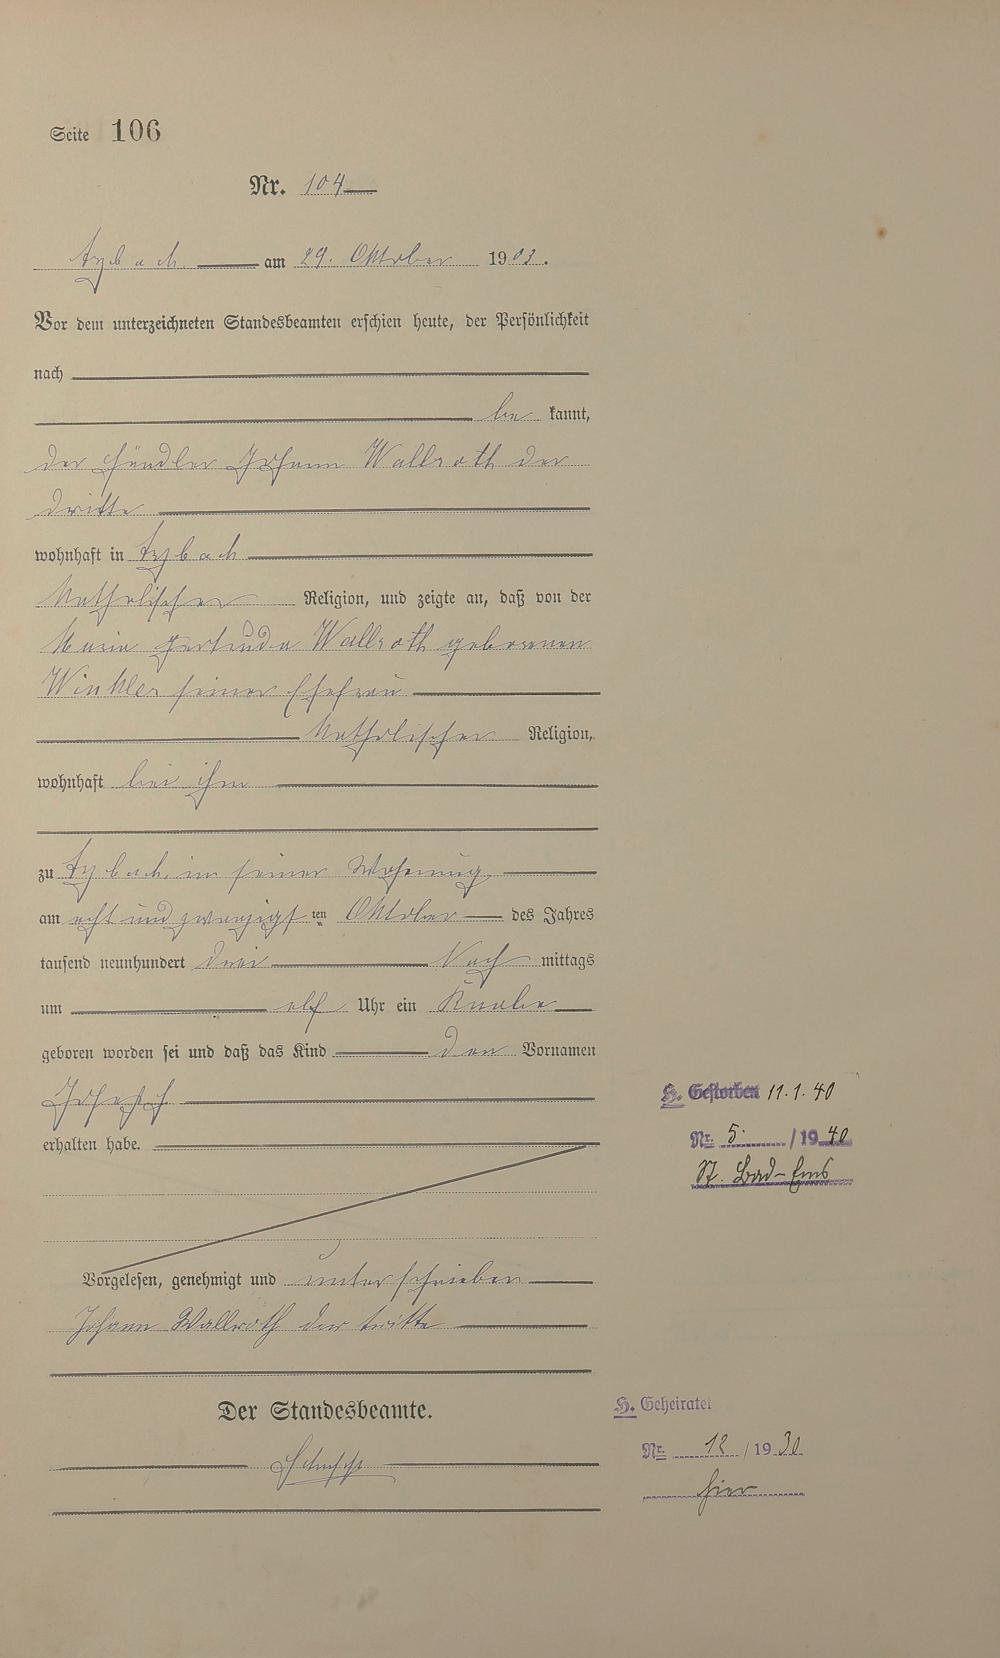 Seite 106
Nr. 104
am 29. Oktober 1903.
Vor dem unterzeichneten Standesbeamten erschien heute, der Persönlichkeit
nach
be kannt,
der Händler Johann Wallroth der
dritte
wohnhaft in
katholischer Religion, und zeigte an, daß von der
Maria Gertruda Wallroth geborenen
Winkler seiner Ehefrau
katholischer Religion,
wohnhaft bei ihm
zu in seiner Wohnung
am acht und zwanzigsten Oktober des Jahres
tausend neunhundert drei Nach mittags
um elf Uhr ein Knabe
geboren worden sei und daß das Kind den Vornamen
Joseph
erhalten habe.
H. Gestorben 11.1.40
Nr. 5 /1940
St. Bad-Ems
Vorgelesen, genehmigt und unterschrieben
Johann Wallroth der tritte
Der Standesbeamte.
H. Geheiratet
Nr. 12 /1930
hier